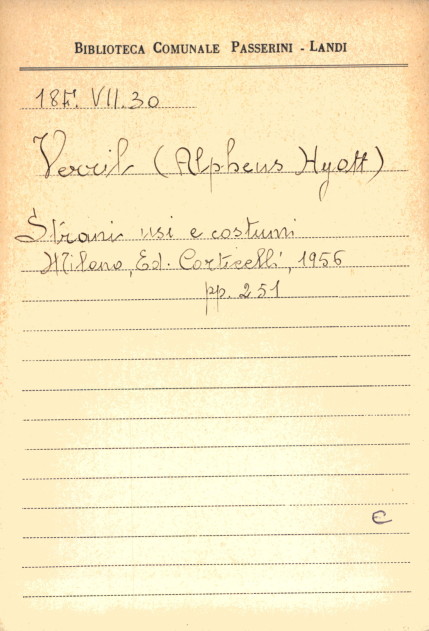 BIBLIOTECA COMUNALE PASSERINI - LANDI
18F. VII.30
Verril (Alpheus Hyatt)
Strani usi e costumi
Milano, Ed. Corticelli, 1956
pp. 251
C